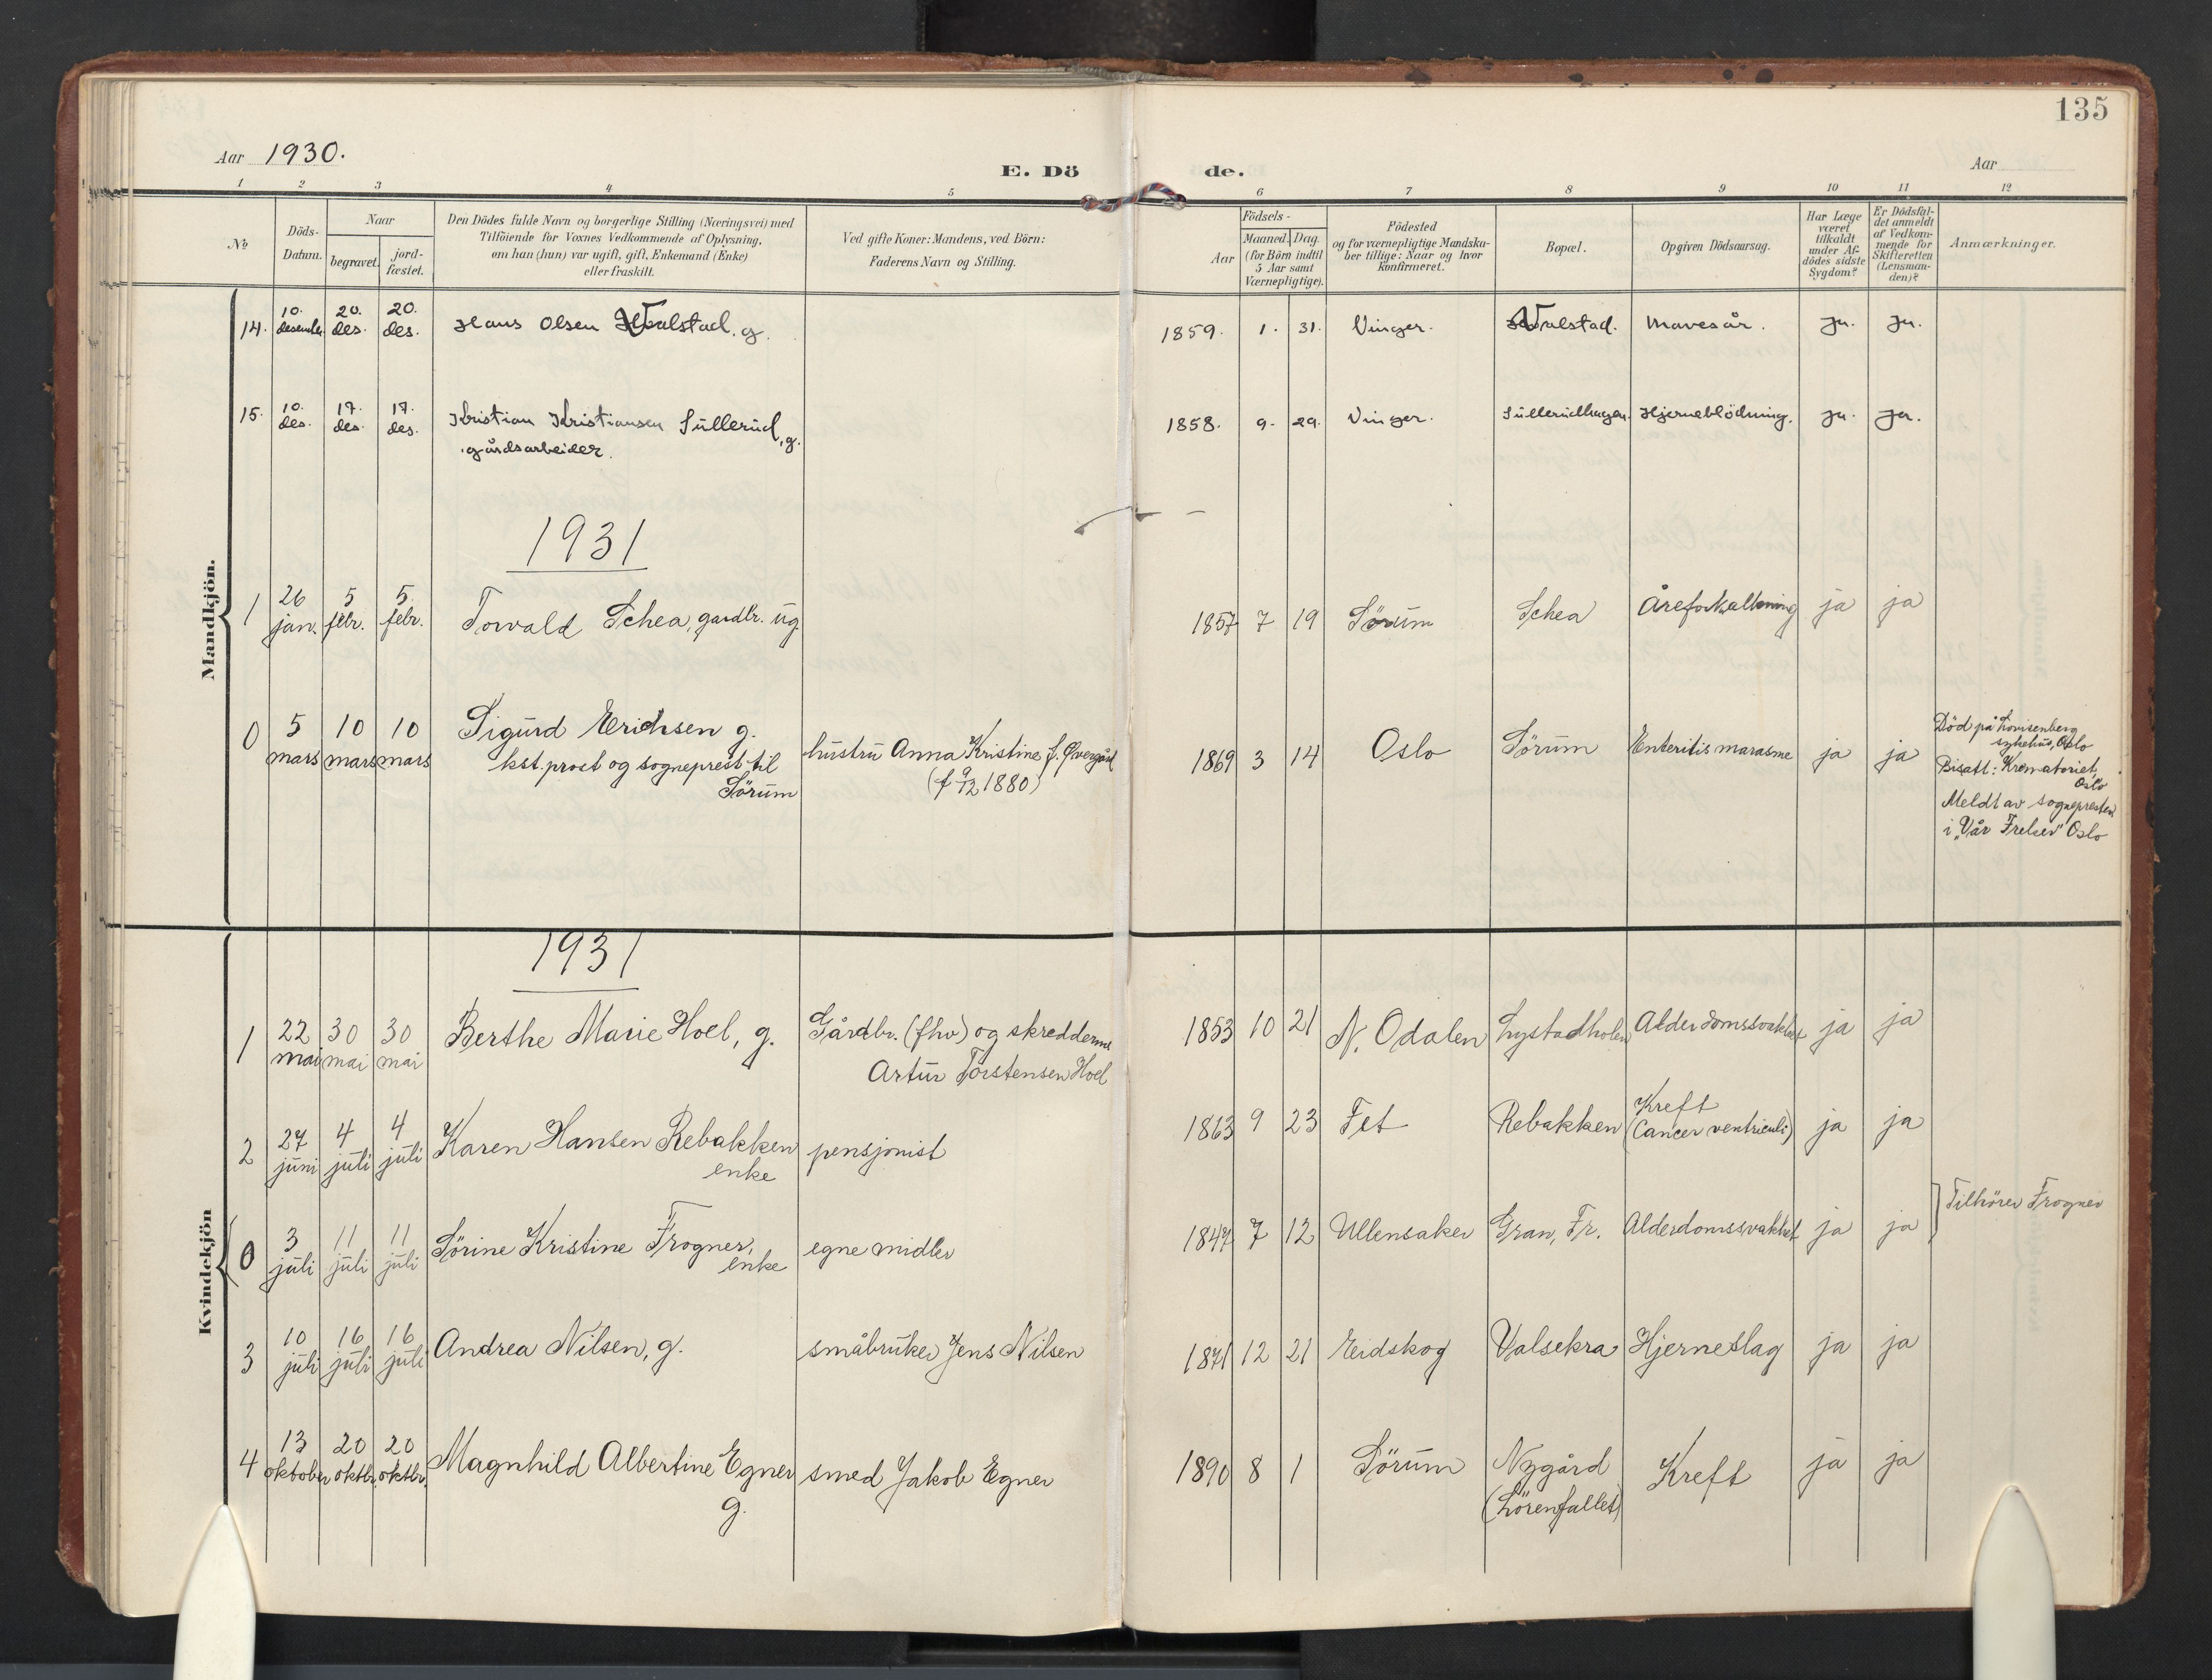 135
Aar 1930.
E. Dö de.
Aar
1 2 3 4 5 6 7 8 9 10 11 12
No
Döds-
Datum.
Naar
begravet.
jord-
fæstet.
Den Dödes fulde Navn og borgerlige Stilling (Næringsvei) med
Tilföiende for Voxnes Vedkommende af Oplysning,
om han (hun) var ugift, gift, Enkemand (Enke)
eller fraskilt.
Ved gifte Koner: Mandens, ved Börn:
Faderens Navn og Stilling.
Födsels-
Aar
Maaned. Dag
(for Börn indtil
5 Aar samt
Værnepligtige).
Födested
og for værnepligtige Mandska-
ber tillige: Naar og hvor
konfirmeret.
Bopæl.
Opgiven Dödsaarsag.
Har Læge
været
tilkaldt
under Af-
dödes sidste
Sygdom?
Er Dödsfal-
det anmeldt
af Vedkom-
mende for
Skifteretten
(Lensman-
den)?
Anmærkninger.
Mandkjön.
14. 10. desember 20. des. 20. des. Hans Olsen Valstad. g. 1859. 1. 31. Vinger. Valstad. Mavesår. ja. ja.
15. 10. des. 17. des. 17. des. Kristian Kristiansen Süllerud, g. 1858. 9. 29. Vinger. Süllerudhagen. Hjerneblödning. ja. ja.
gårdsarbeider.
1931
1 26 jan. 5 febr. 5 febr. Torvald Schea, gardbr. ug. 1857 7 19 Sörum Schea Åreforkalkning ja ja
0 5 mars 10 mars 10 mars Sigurd Erichsen g.
kst. prost og sogneprest til
Sörum
hustru Anna Kristine f. Øvergård
(f 9/12 1880)
1869 3 14 Oslo Sörum Enteritis marasme ja ja
Död på Lovisenberg
sykehus, Oslo
Bisatt: Krematoriet,
Oslo
Meldt av sognepresten
i "Vår Frelser" Oslo
Kvindekjön
1931
1 22 mai 30 mai 30 mai Berthe Marie Hoel, g. Gårdbr. (fhv) og skreddermr
Artur Torstensen Hoel
1853 10 21 N. Odalen Lystadholen Alderdomssvakhet ja ja
2 27 juni 4 juli 4 juli Karen Hansen Rebakken
enke
pensjonist 1863 9 23 Fet Rebakken Kreft
(Cancer ventriculi)
ja ja
0 3 juli 11 juli 11 juli Sörine Kristine Frogner,
enke
egne midler 1847 7 12 Ullensaker Gran, Fr. Alderdomssvakhet ja ja Tilhörer Frogner
3 10 juli 16 juli 16 juli Andrea Nilsen, g. småbruker Jens Nilsen 1871 12 21 Eidskog Valsekra Hjerneslag ja ja
4 13 oktober 20 oktbr. 20 oktbr. Magnhild Albertine Egner
g.
smed Jakob Egner 1890 8 1 Sörum Nygård
(Lörenfallet)
Kreft ja ja